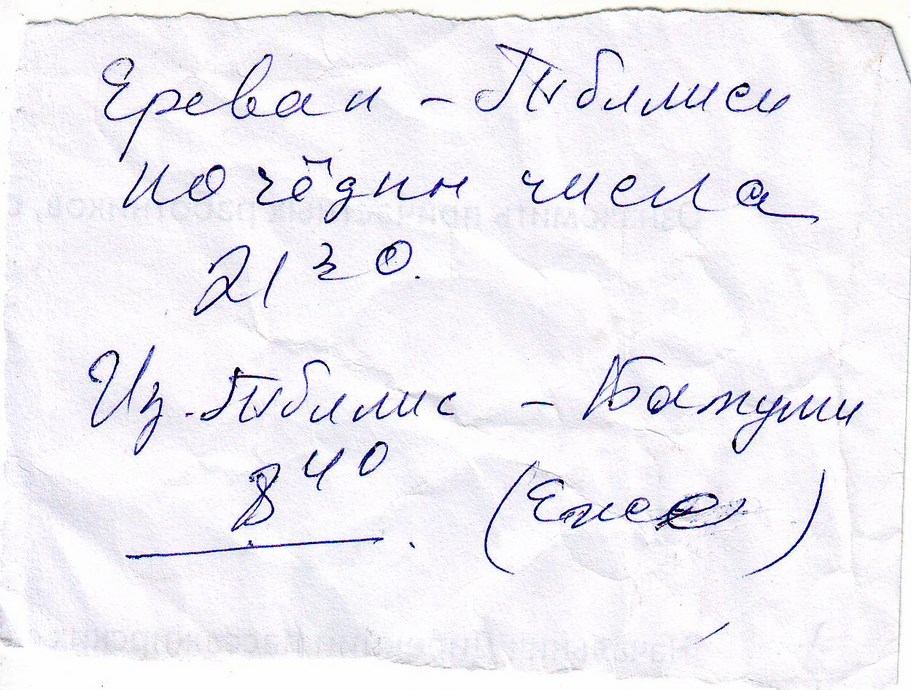 Ереван - Тбилиси
по чёдин числа
21 30.
Из. Тбилис - Батуми
8 40 . (Еже)